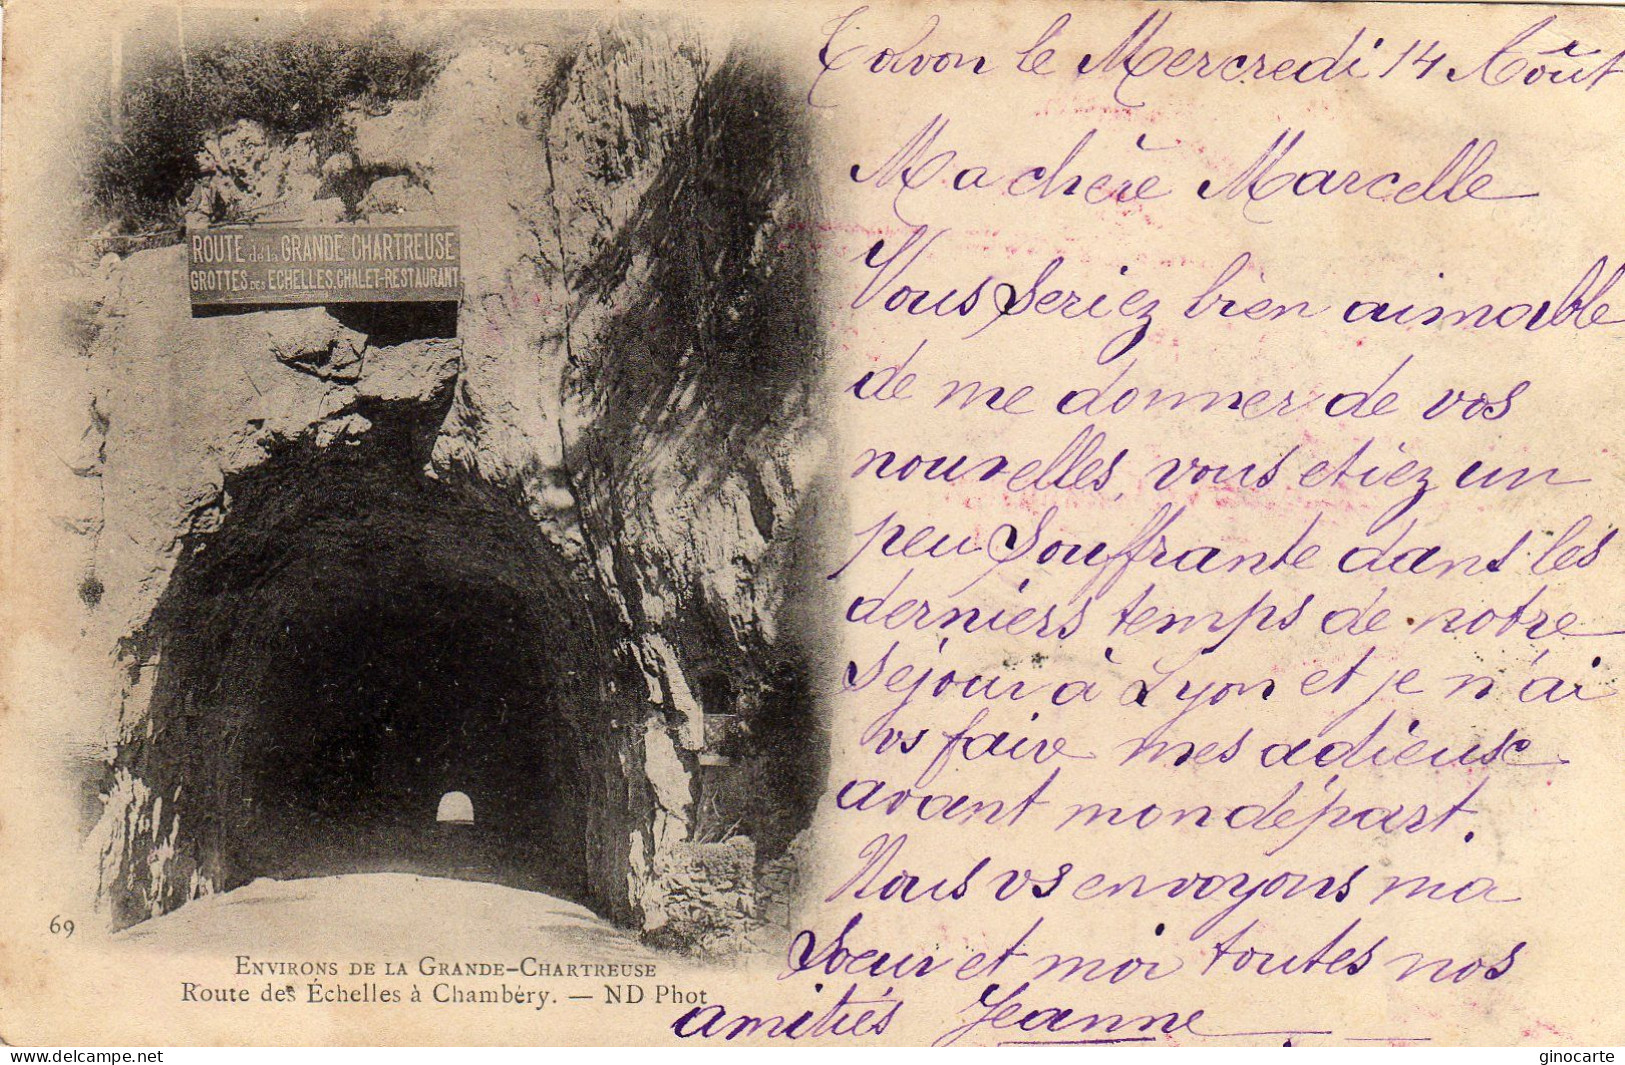 ROUTE de la GRANDE CHARTREUSE
GROTTES DES ECHELLES, CHALET-RESTAURANT
69
ENVIRONS DE LA GRANDE-CHARTREUSE
Route des Échelles à Chambéry. — ND Phot
le Mercredi 14 Août
Ma chère Marcelle
Vous seriez bien aimable
de me donner de vos
nouvelles, vous etiez un
peu souffrante dans les
derniers temps de notre
séjour à Lyon et je n'ai
vs faire mes adieux
avant mon départ.
Nous vs envoyons ma
soeur et moi toutes nos
amitiés Jeanne
delcampe.net
ginocarte